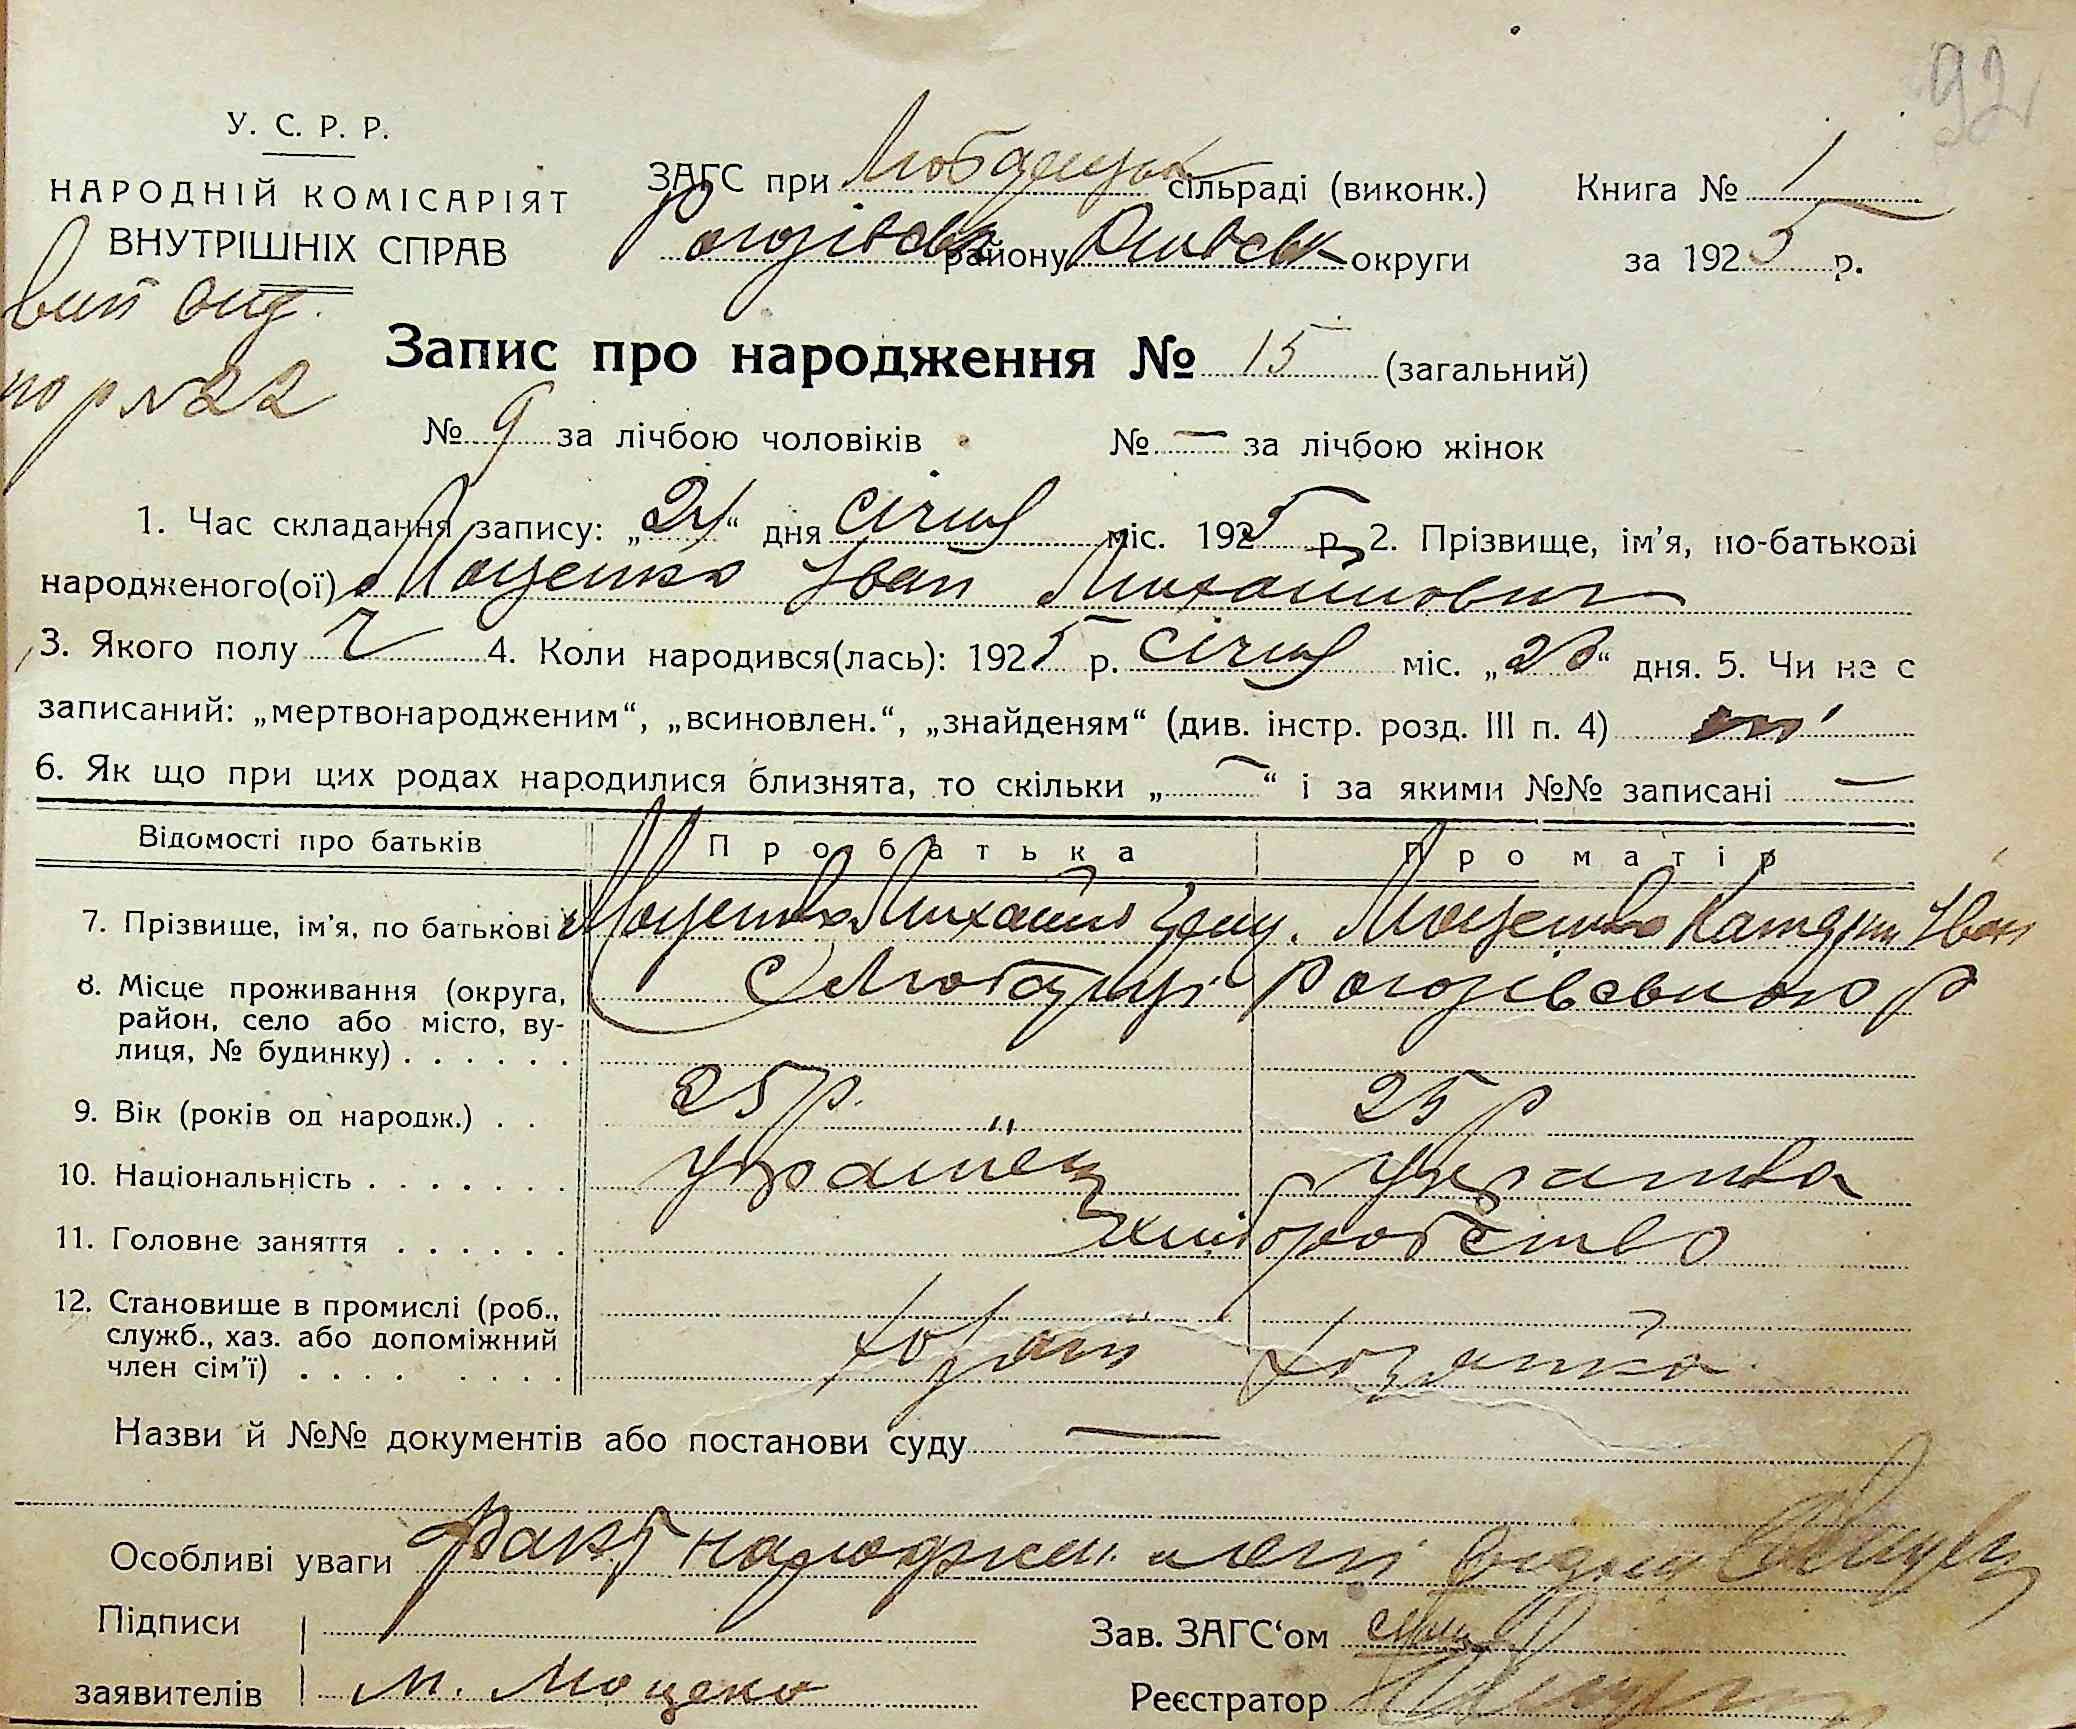 92
У. С. Р. Р.
НАРОДНІЙ КОМІСАРІЯТ
ВНУТРІШНІХ СПРАВ
ЗАГС при Любарецьк сільраді (виконк.) Книга № 1
Рогозівськ району Київськ округи за 1925 р.
Запис про народження № 15 (загальний)
по р №22
№ 9 за лічбою чоловіків № — за лічбою жінок
1. Час складання запису: „24“ дня січня міс. 1925 р. 2. Прізвище, ім’я, по-батькові
народженого(ої) Моценко Іван Михайлович
3. Якого полу ч 4. Коли народився(лась): 1925 р. січня міс. „23“ дня. 5. Чи не є
записаний: „мертвонародженим“, „всиновлен.“, „знайденям“ (див. інстр. розд. III п. 4) ні
6. Як що при цих родах народилися близнята, то скільки „—“ і за якими №№ записані —
Відомості про батьків Про батька Про матір
7. Прізвище, ім’я, по батькові Моценко Михайло Моценко Катерин Іван
8. Місце проживання (округа, район, село або місто, вулиця, № будинку) . . . . . . С Любарці Рогозівського р
9. Вік (років од народж.) . . 25 р. 25 р
10. Національність . . . . . . . українець українка
11. Головне заняття . . . . . . хліборобство
12. Становище в промислі (роб., служб., хаз. або допоміжний член сім’ї) . . . . . . . . хазяїн хазяйка
Назви й №№ документів або постанови суду —
Особливі уваги Факт народжен.
Підписи Зав. ЗАГС‘ом
заявителів М. Моценко Реєстратор